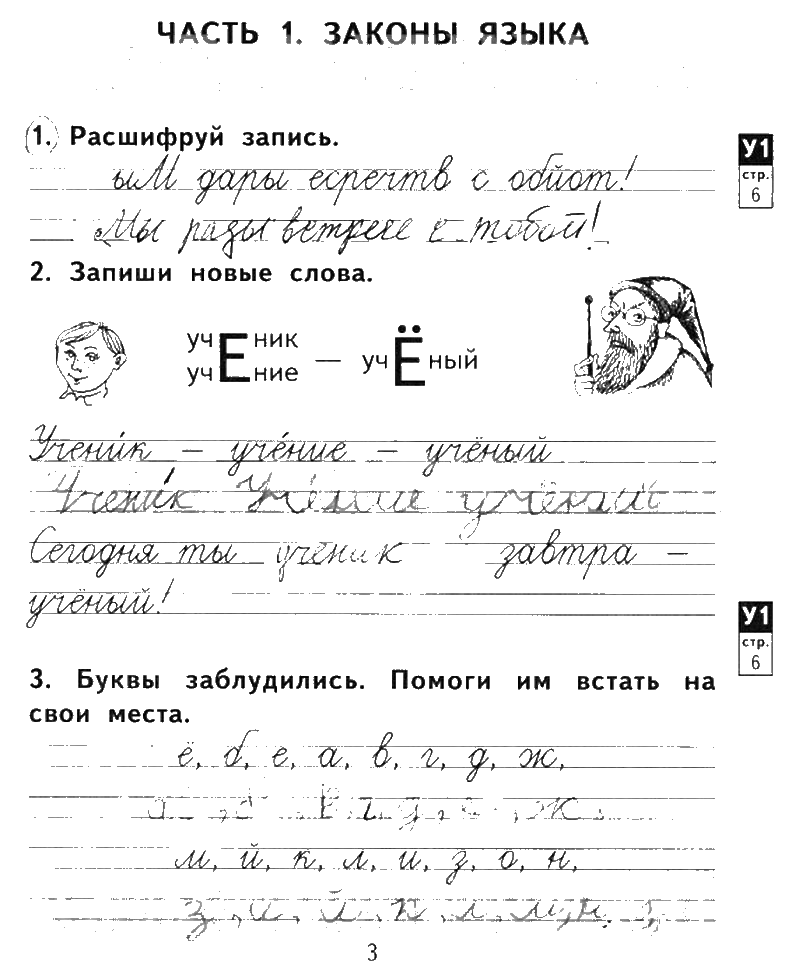 ЧАСТЬ 1. ЗАКОНЫ ЯЗЫКА
1. Расшифруй запись.
У1
стр.
6
ыМ дары есречтв с обйот!
Мы рады встрече с тобой!
2. Запиши новые слова.
учЕник
учЕние — учЁный
Учени́к – уче́ние – учёный
Учени́к Уче́ние учёный
Сегодня ты ученик завтра –
учёный!
У1
стр.
6
3. Буквы заблудились. Помоги им встать на
свои места.
ё, б, е, а, в, г, д, ж,
а б в г д е ж
м, й, к, л, и, з, о, н,
з, и, й, к, л, м, н,
3